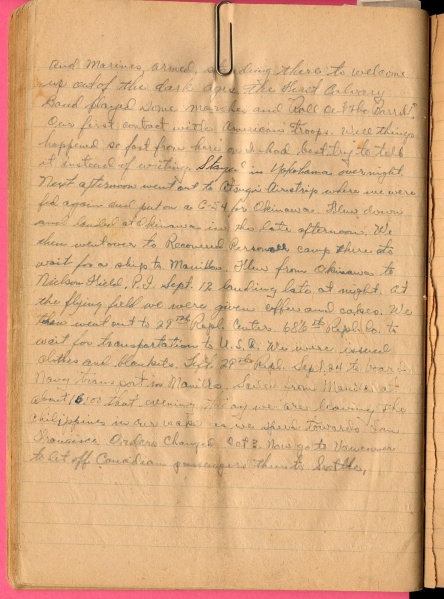 and Marines, armed, standing there to welcome
us out of the dark ages. The First Calvary
Band played some marches and "Roll Out The Barrel".
Our first contact with American Troops. Well things
happend so fast from here on I had best try to tell
it instead of writing. Stayed in Yokohama overnight.
Next afternoon went out to Atsugi Airstrip where we were
fed again and put on a C-54 for Okinawa. Flew down
and landed at Okinawa in the late afternoon. We
then went over to Recovered Personell camp there to
wait for a ship to Manilla. Flew from Okinawa to
Nielson Field, P.I. Sept. 12 landing late at night. At
the flying field we were given coffee and cakes. We
then went out to 29th Repl. Center. 686th Repl. Co. to
wait for transportation to U.S.A. We were issued
clothes and blankets. Left 29th Repl. Sept. 24 to board
Navy Transport in Manilla. Sailed from Manila at
about 16:00 that evening. Today we are leaving the
Philippines in our wake as we speed towards San
Francisco. Orders Changed Oct 3. Now go to Vancouver
to let off Canadian passengers then to Seattle.